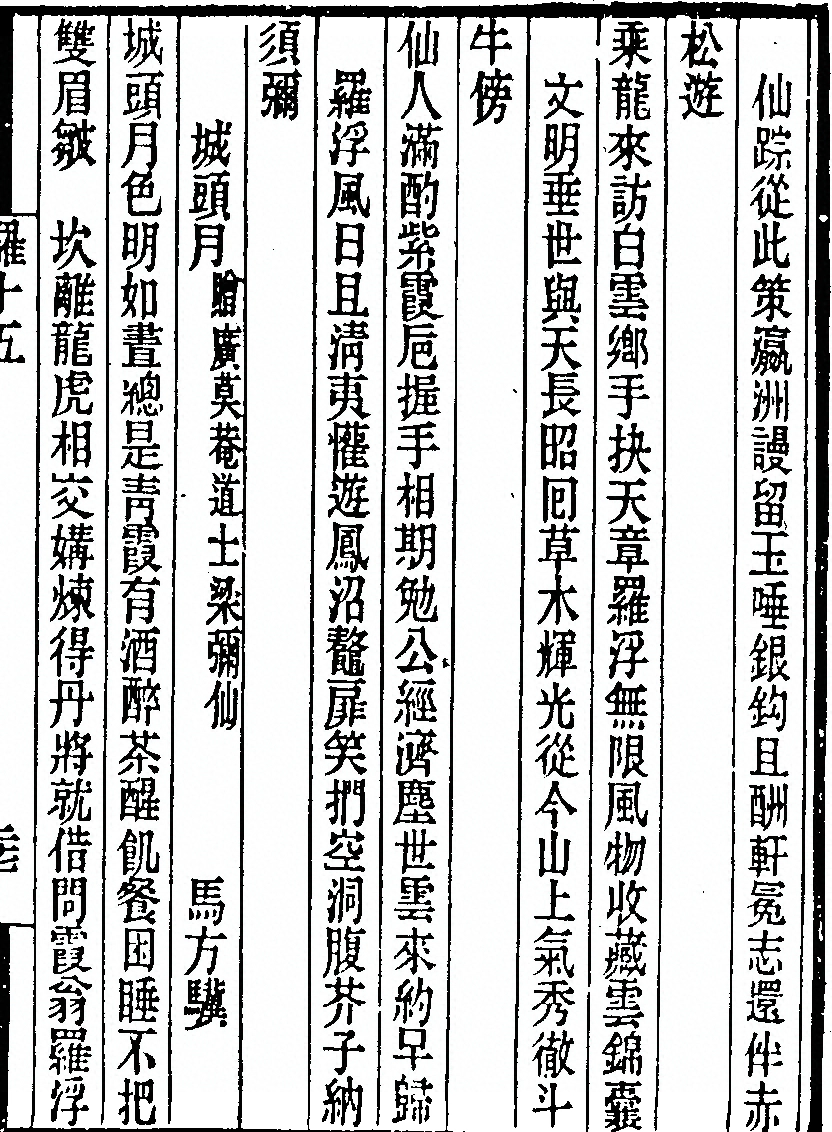 仙踪從此策瀛洲謾留玉唾銀鈎且酬軒冕志還伴赤
松遊
乘龍來訪白雲鄉手抉天章羅浮無限風物收藏雲錦囊
文明垂世與天長昭回草木輝光從今山上氣秀徹斗
牛傍
仙人滿酌紫霞巵握手相期勉公經濟塵世雲來約早歸
羅浮風日且淸夷懽遊鳳沼鼇扉笑捫空洞腹芥子納
須彌
城頭月贈廣莫菴道士梁彌仙 馬方驥
城頭月色明如晝總是靑霞有酒醉茶醒飢餐困睡不把
雙眉皺 坎離龍虎相交媾煉得丹將就借問霞翁羅浮
羅十五